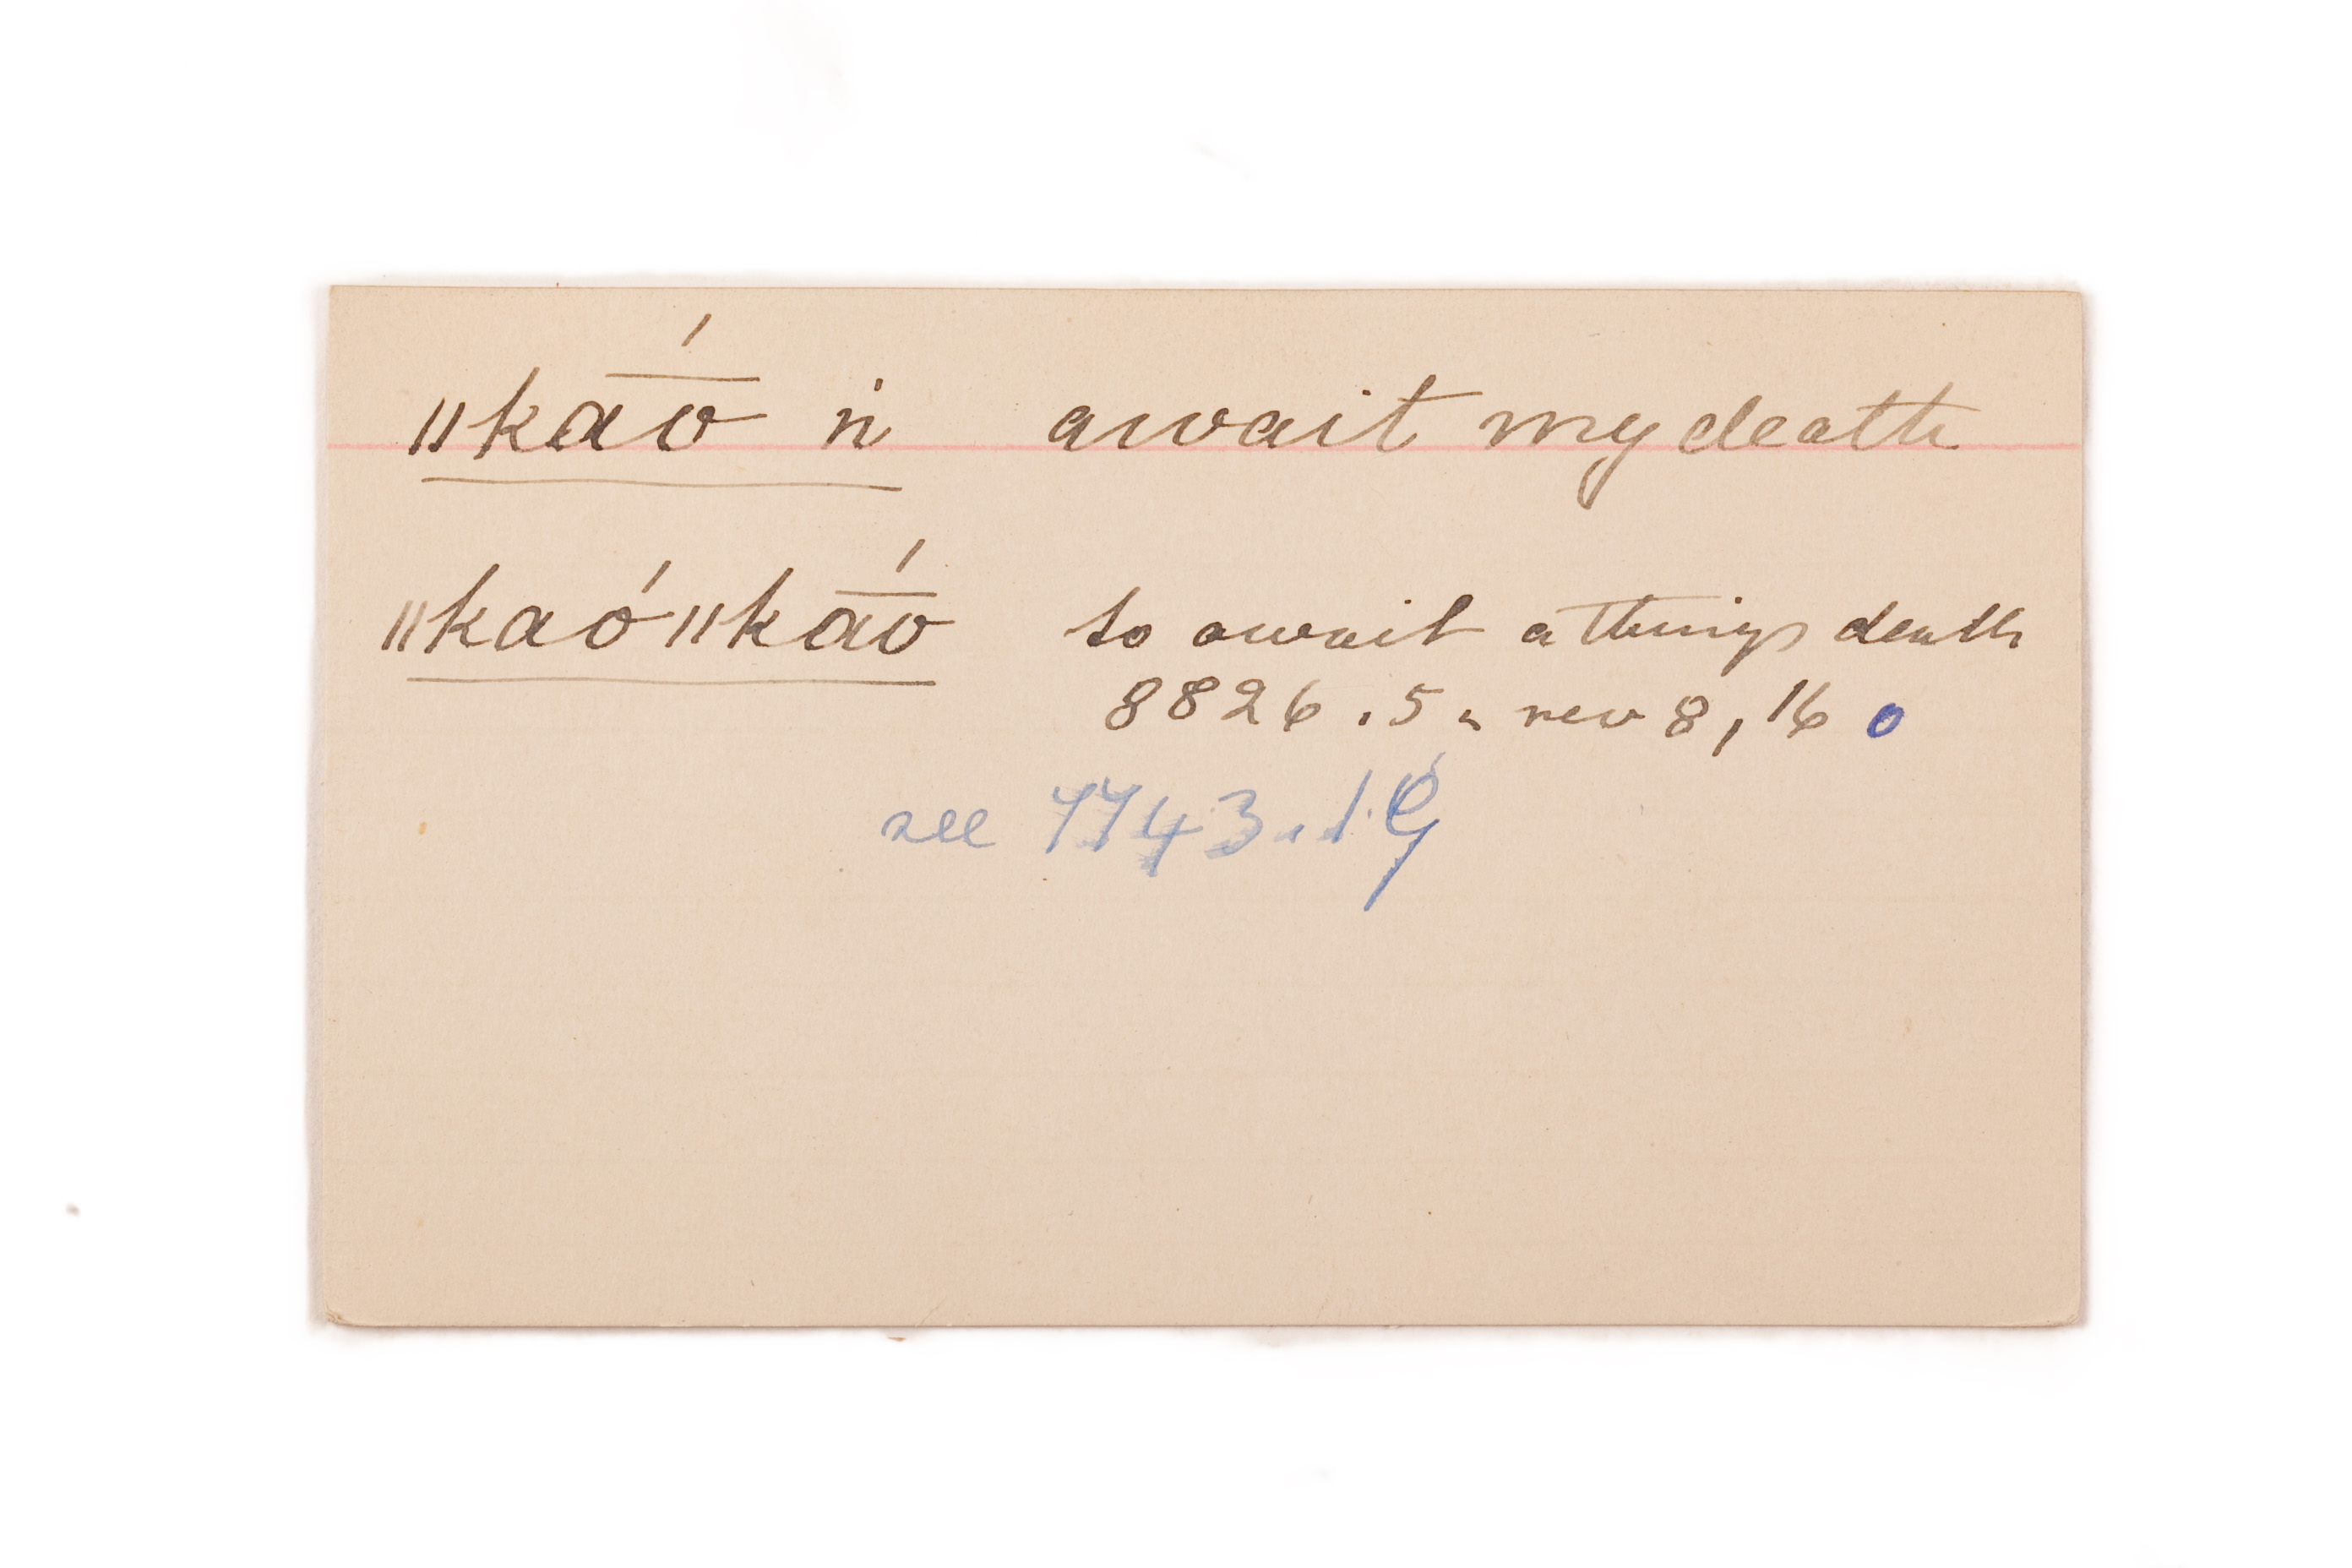 ǁka͞ó ṅ await my death
ǁkaóǁka͞ó to await a things death
8826.5. rev 8, 16 o
see 7743.